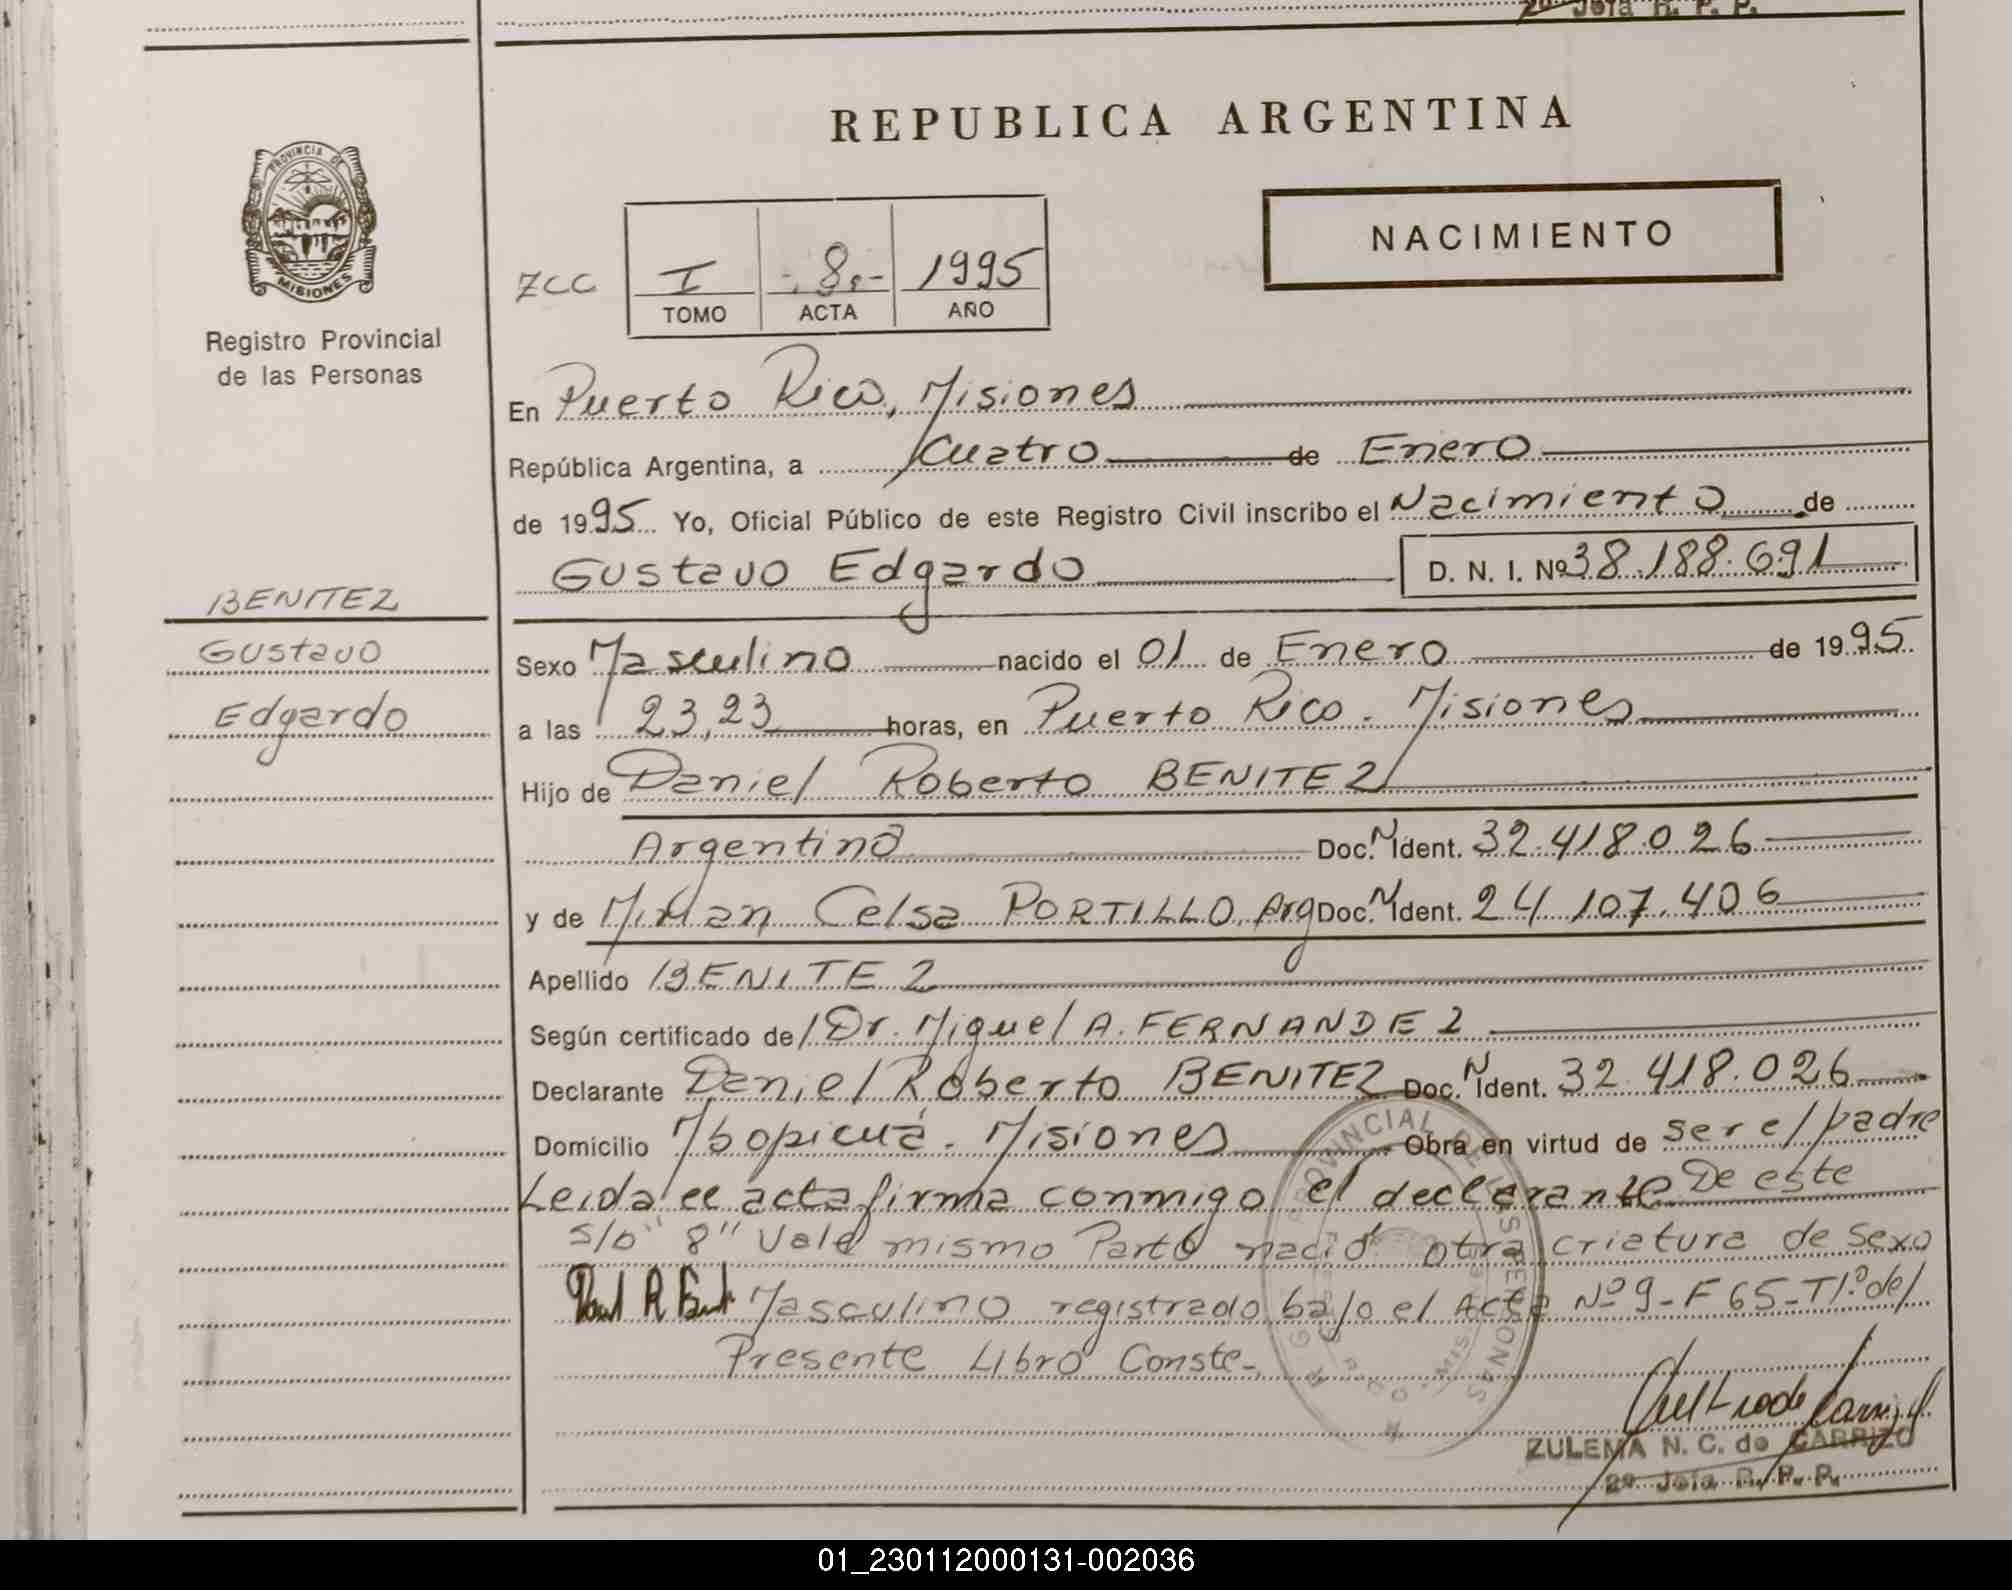 2º Jefa R. P. P.
REPUBLICA ARGENTINA
PROVINCIA DE
MISIONES
NACIMIENTO
ZCC
I -.8.- 1995
TOMO ACTA AÑO
Registro Provincial
de las Personas
En Puerto Rico, Misiones
República Argentina, a Cuatro de Enero
de 1995 Yo, Oficial Público de este Registro Civil inscribo el Nacimiento de
Gustavo Edgardo D. N. I. Nº 38.188.691
BENITEZ
Gustavo
Edgardo
Sexo Masculino nacido el 01 de Enero de 1995
a las 23,23 horas, en Puerto Rico. Misiones
Hijo de Daniel Roberto BENITEZ
Argentino Doc. N Ident. 32.418.026
y de Mirian Celsa PORTILLO, Arg Doc. N Ident. 24.107.406
Apellido BENITEZ
Según certificado de Dr. Miguel A. FERNANDEZ
Declarante Daniel Roberto BENITEZ Doc. N Ident. 32.418.026
Domicilio Ibopicuá. Misiones Obra en virtud de ser el padre
Leida el acta firma conmigo el declarante De este
s/b "8" Vale mismo Parto nació otra criatura de sexo
Masculino registrado bajo el Acta Nº 9-F 65-T1º del
Presente Libro Conste-.
ZULEMA N. C. de CARRIZO
2º Jefa R. P. P.
01_230112000131-002036